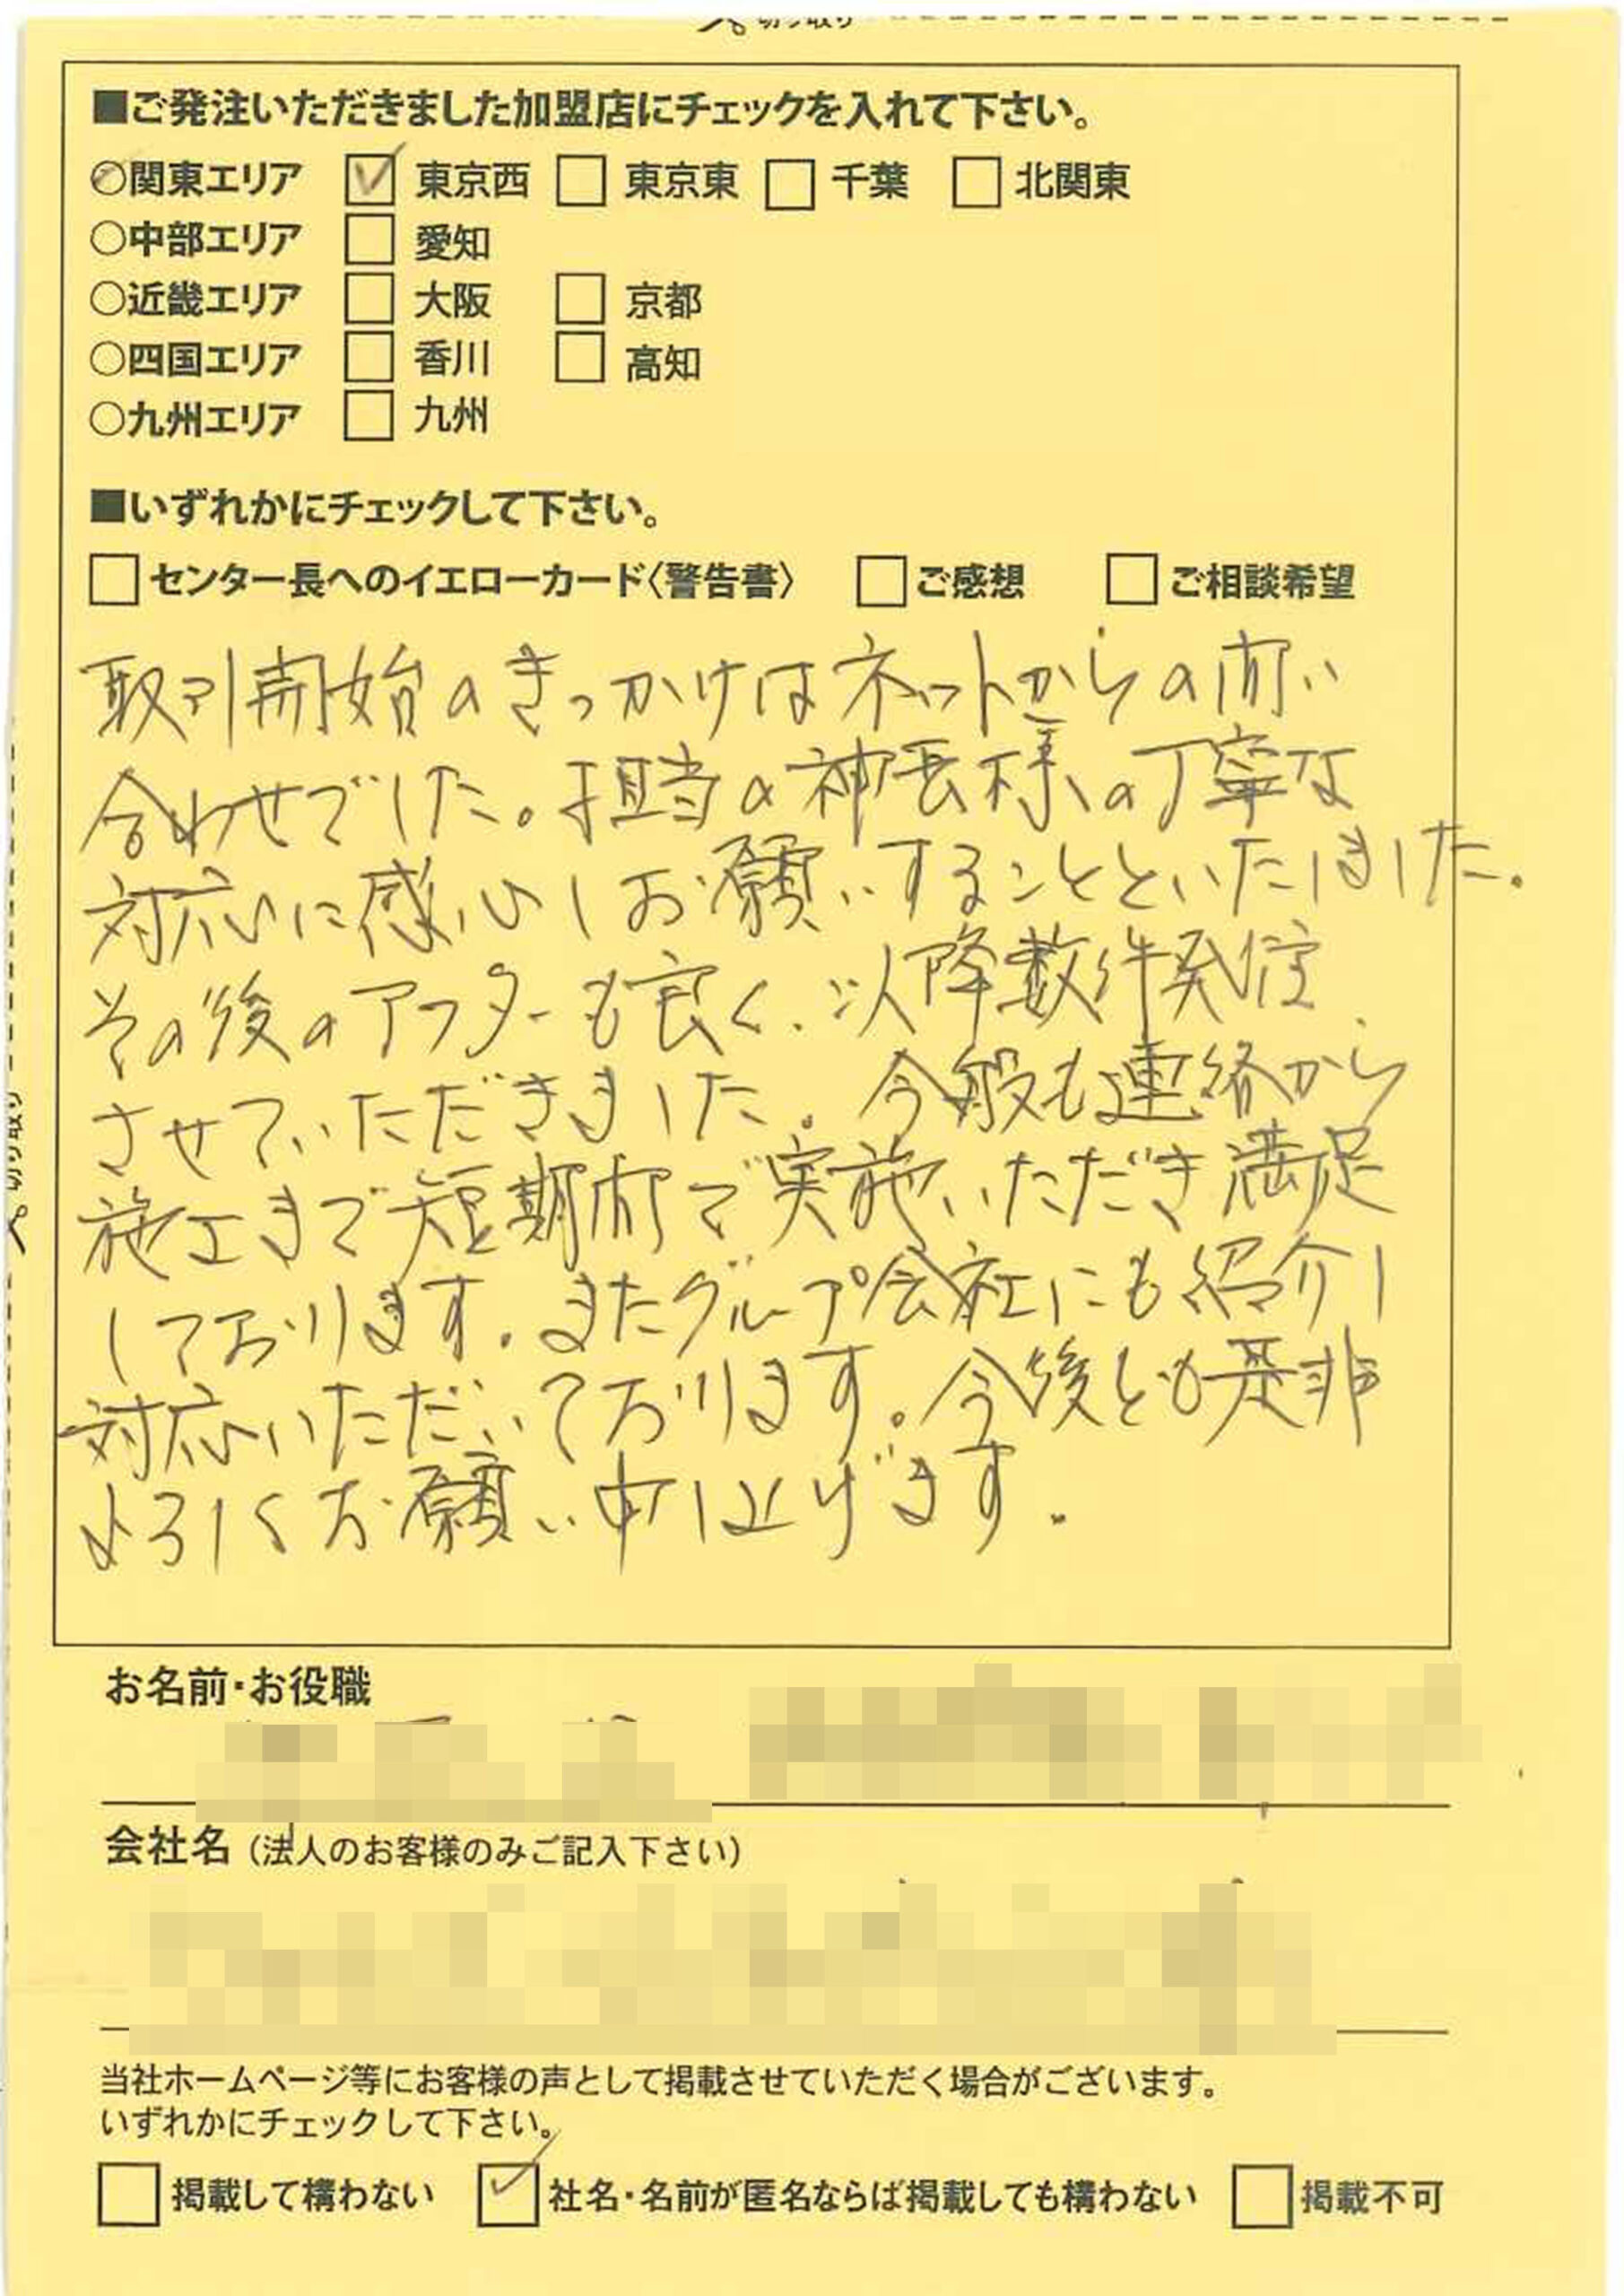 切り取り
■ご発注いただきました加盟店にチェックを入れて下さい。
○関東エリア ☑ 東京西 □ 東京東 □ 千葉 □ 北関東
○中部エリア □ 愛知
○近畿エリア □ 大阪 □ 京都
○四国エリア □ 香川 □ 高知
○九州エリア □ 九州
■いずれかにチェックして下さい。
□ センター長へのイエローカード〈警告書〉 □ ご感想 □ ご相談希望
取引開始のきっかけはネットからの問い
合わせでした。担当の神長様の丁寧な
対応に感心しお願いすることといたしました。
その後のアフターも良く、以降数件発注
させていただきました。今般も連絡から
施工まで短期間で実施いただき満足
しております。またグループ会社にも紹介し
対応いただいております。今後とも是非
よろしくお願い申し上げます。
切り取り
お名前・お役職
会社名（法人のお客様のみご記入下さい）
当社ホームページ等にお客様の声として掲載させていただく場合がございます。
いずれかにチェックして下さい。
□ 掲載して構わない ☑ 社名・名前が匿名ならば掲載しても構わない □ 掲載不可